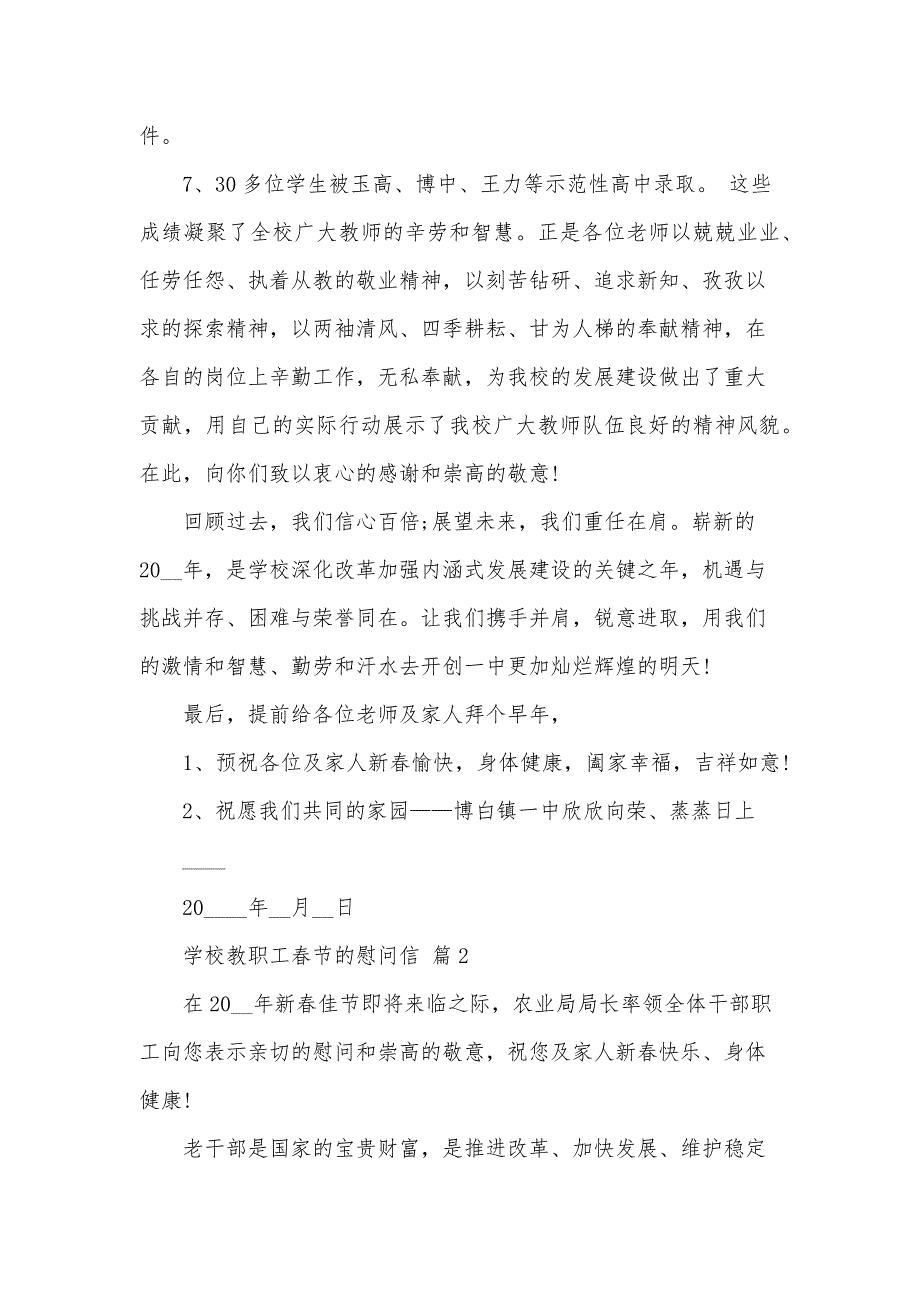 件。
7、30 多位学生被玉高、博中、王力等示范性高中录取。 这些
成绩凝聚了全校广大教师的辛劳和智慧。正是各位老师以兢兢业业、
任劳任怨、执着从教的敬业精神，以刻苦钻研、追求新知、孜孜以
求的探索精神，以两袖清风、四季耕耘、甘为人梯的奉献精神，在
各自的岗位上辛勤工作，无私奉献，为我校的发展建设做出了重大
贡献，用自己的实际行动展示了我校广大教师队伍良好的精神风貌。
在此，向你们致以衷心的感谢和崇高的敬意!
回顾过去，我们信心百倍;展望未来，我们重任在肩。崭新的
20__年，是学校深化改革加强内涵式发展建设的关键之年，机遇与
挑战并存、困难与荣誉同在。让我们携手并肩，锐意进取，用我们
的激情和智慧、勤劳和汗水去开创一中更加灿烂辉煌的明天!
最后，提前给各位老师及家人拜个早年，
1、预祝各位及家人新春愉快，身体健康，阖家幸福，吉祥如意!
2、祝愿我们共同的家园——博白镇一中欣欣向荣、蒸蒸日上
____
20____年__月__日
学校教职工春节的慰问信 篇 2
在 20__年新春佳节即将来临之际，农业局局长率领全体干部职
工向您表示亲切的慰问和崇高的敬意，祝您及家人新春快乐、身体
健康!
老干部是国家的宝贵财富，是推进改革、加快发展、维护稳定